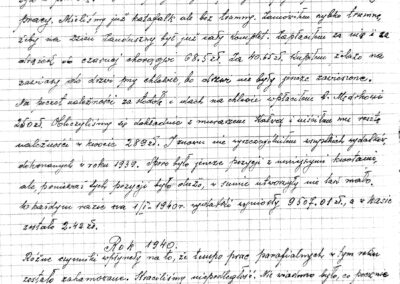 pracy. Mieliśmy już katafalk ale bez trumny. Zamówiłem szybko trumnę,
żeby na Dzień Zaduszny był już cały komplet. Zapłaciłem za nią i za
drążek do czarnej chorągwi 68,5 zł. Za 40.65 zł. kupiłem żelazo na
zawiasy do drzwi przy chlewie, bo drzwi nie były jeszcze zawieszone.
Na poczet należności za stodołę i dach na chlewie wpłaciłem J. Mędrkowi
250 zł. Obliczyliśmy się dokładnie z murarzem i uiściłem mu resztę
należności w kwocie 289 zł. I znowu nie wyszczególniłem wszystkich wydatków
dokonanych w roku 1939. Sporo było jeszcze pozycji z mniejszymi kwotami,
ale, ponieważ tych pozycji było dużo, w sumie utworzyły nie tak mało.
W każdym razie na 1/I-1940 r. wydatki wyniosły 9507.01 zł, a w kasie
zostało 2.42 zł.
Rok 1940.
Różne czynniki wpłynęły na to, że tempo prac parafialnych w tym roku
zostało zahamowane. Straciliśmy niepodległość. Nie wiadomo było, co pocznie